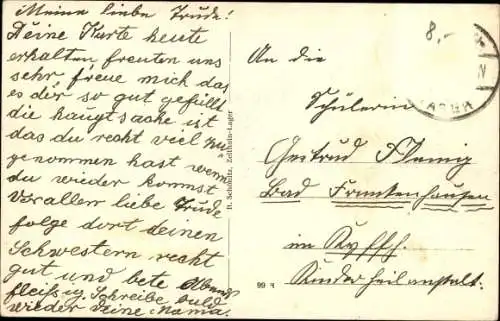 Meine liebe Trude!
Deine Karte heute
erhalten freuten uns
sehr, freue mich das
es dir so gut gefüllt
die hauptsache ist
das du recht viel zu
genommen hast wenn
du wieder kommst
Vorallem liebe Trude
folge dort deinen
Schwestern recht
gut und bete Abends
fleissig, Schreibe bald
wieder deine Mama.
R. Schöbitz, Zellhein-Lager
8,-
An die
Schülerin
Gertrud
Bad Frankenhausen
im Kyffh.
Kinderheilanstalt.
99